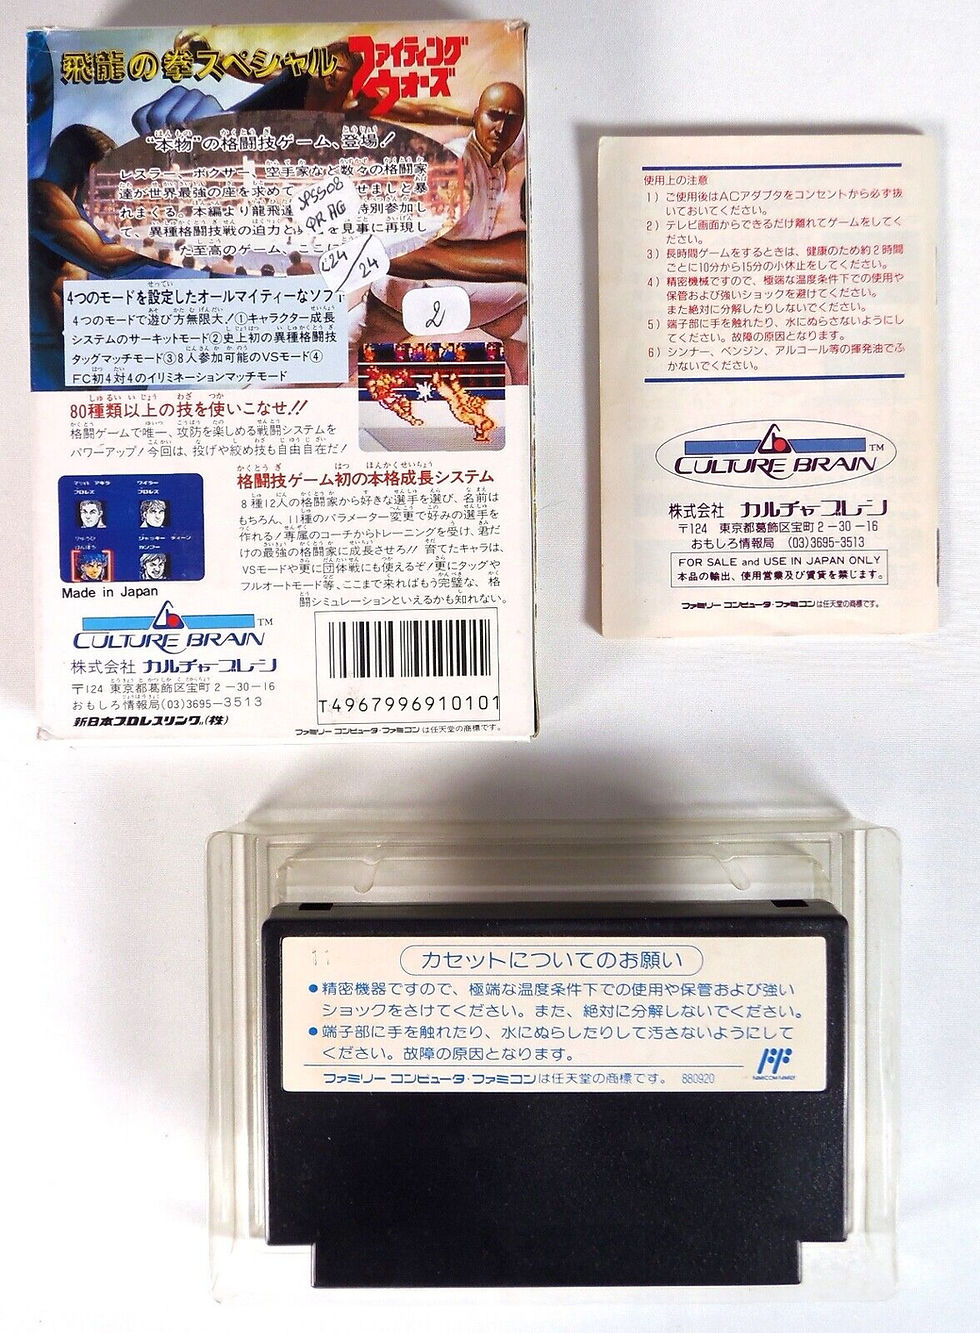 飛龍の拳スペシャル
ファイティング
ウォーズ
"本物"の格闘技ゲーム、登場!
レスラー、ボクサー、空手家など数々の格闘家
達が世界最強の座を求めて せましと暴
れまくる。本編より龍飛達 特別参加し
て、異種格闘技戦の迫力と を見事に再現し
た至高のゲーム、ここに
SPSS08
24
2
4つのモードを設定したオールマイティーなソフト
4つのモードで遊び方無限大!①キャラクター成長
システムのサーキットモード②史上初の異種格闘技
タッグマッチモード③8人参加可能のVSモード④
FC初4対4のイリミネーションマッチモード
80種類以上の技を使いこなせ!!
格闘ゲームで唯一、攻防を楽しめる戦闘システムを
パワーアップ!今回は、投げや絞め技も自由自在だ!
格闘技ゲーム初の本格成長システム
8種12人の格闘家から好きな選手を選び、名前は
もちろん、11種のパラメーター変更で好みの選手を
作れる!専属のコーチからトレーニングを受け、君だ
けの最強の格闘家に成長させろ!!育てたキャラは、
VSモードや更に団体戦にも使えるぞ!更にタッグや
フルオートモード等、ここまで来ればもう完璧な、格
闘シミュレーションといえるかも知れない。
マット アキラ
プロレス
ワイラー
プロレス
りゅうひ
けんぽう
ジャッキー チェーン
カンフー
Made in Japan
CULTURE BRAIN TM
株式会社 カルチャーブレーン
〒124 東京都葛飾区宝町2-30-16
おもしろ情報局(03)3695-3513
新日本プロレスリング(株)
T4967996910101
ファミリーコンピュータ・ファミコンは任天堂の商標です。
使用上の注意
1)ご使用後はACアダプタをコンセントから必ず抜
いておいてください。
2)テレビ画面からできるだけ離れてゲームをしてく
ださい。
3)長時間ゲームをするときは、健康のため約2時間
ごとに10分から15分の小休止をしてください。
4)精密機械ですので、極端な温度条件下での使用や
保管および強いショックを避けてください。
また絶対に分解したりしないでください。
5)端子部に手を触れたり、水にぬらさないようにし
てください。故障の原因となります。
6)シンナー、ベンジン、アルコール等の揮発油でふ
かないでください。
CULTURE BRAIN TM
株式会社 カルチャーブレーン
〒124 東京都葛飾区宝町2-30-16
おもしろ情報局 (03)3695-3513
FOR SALE and USE IN JAPAN ONLY
本品の輸出、使用営業及び賃貸を禁じます。
ファミリーコンピュータ・ファミコンは任天堂の商標です。
11
カセットについてのお願い
●精密機器ですので、極端な温度条件下での使用や保管および強い
ショックをさけてください。また、絶対に分解しないでください。
●端子部に手を触れたり、水にぬらしたりして汚さないようにして
ください。故障の原因となります。
ファミリーコンピュータ・ファミコンは任天堂の商標です。 880920
FAMICOM FAMILY